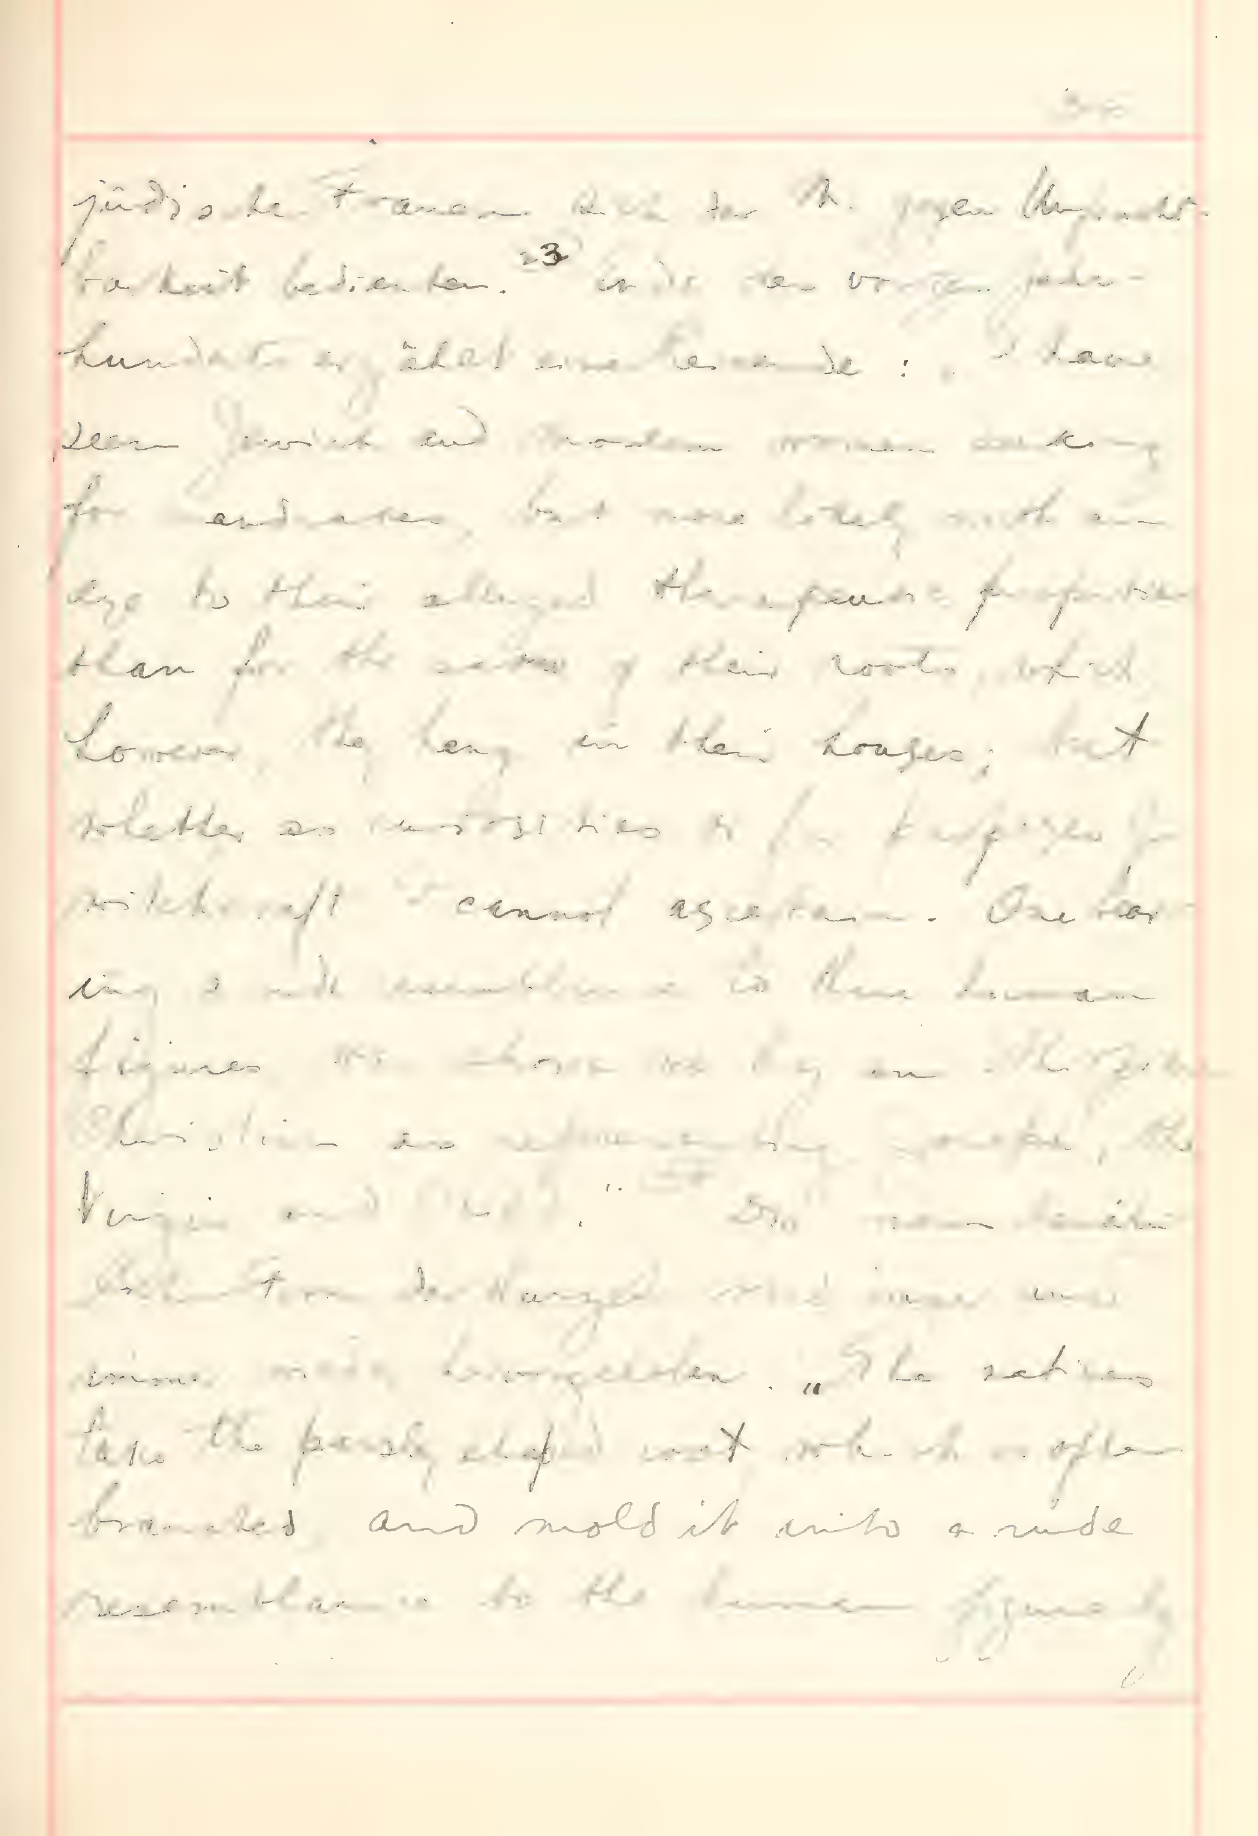 jüdische Frauen sich der M. gegen Unfrucht-
barkeit bedienten. 23 des vorigen Jahr-
hunderts erzählt eine Reisende: I have
seen Jewish and Moslem women seeking
for mandrakes, but more lately with an
eye to their alleged therapeutic properties
than for the sake of their roots, which
however, they hang in their houses; but
whether as curiosities or for purposes of
witchcraft I cannot ascertain. One bear-
ing a rude resemblance to three human
figures was shown me by an
Christian as representing Joseph, the
Virgin and Child."
Form der Wurzel wird immer und
immer wieder hervorgehoben. „The natives
take the parsley shaped root which is often
branched, and mold it into a rude
resemblance to the human figure by